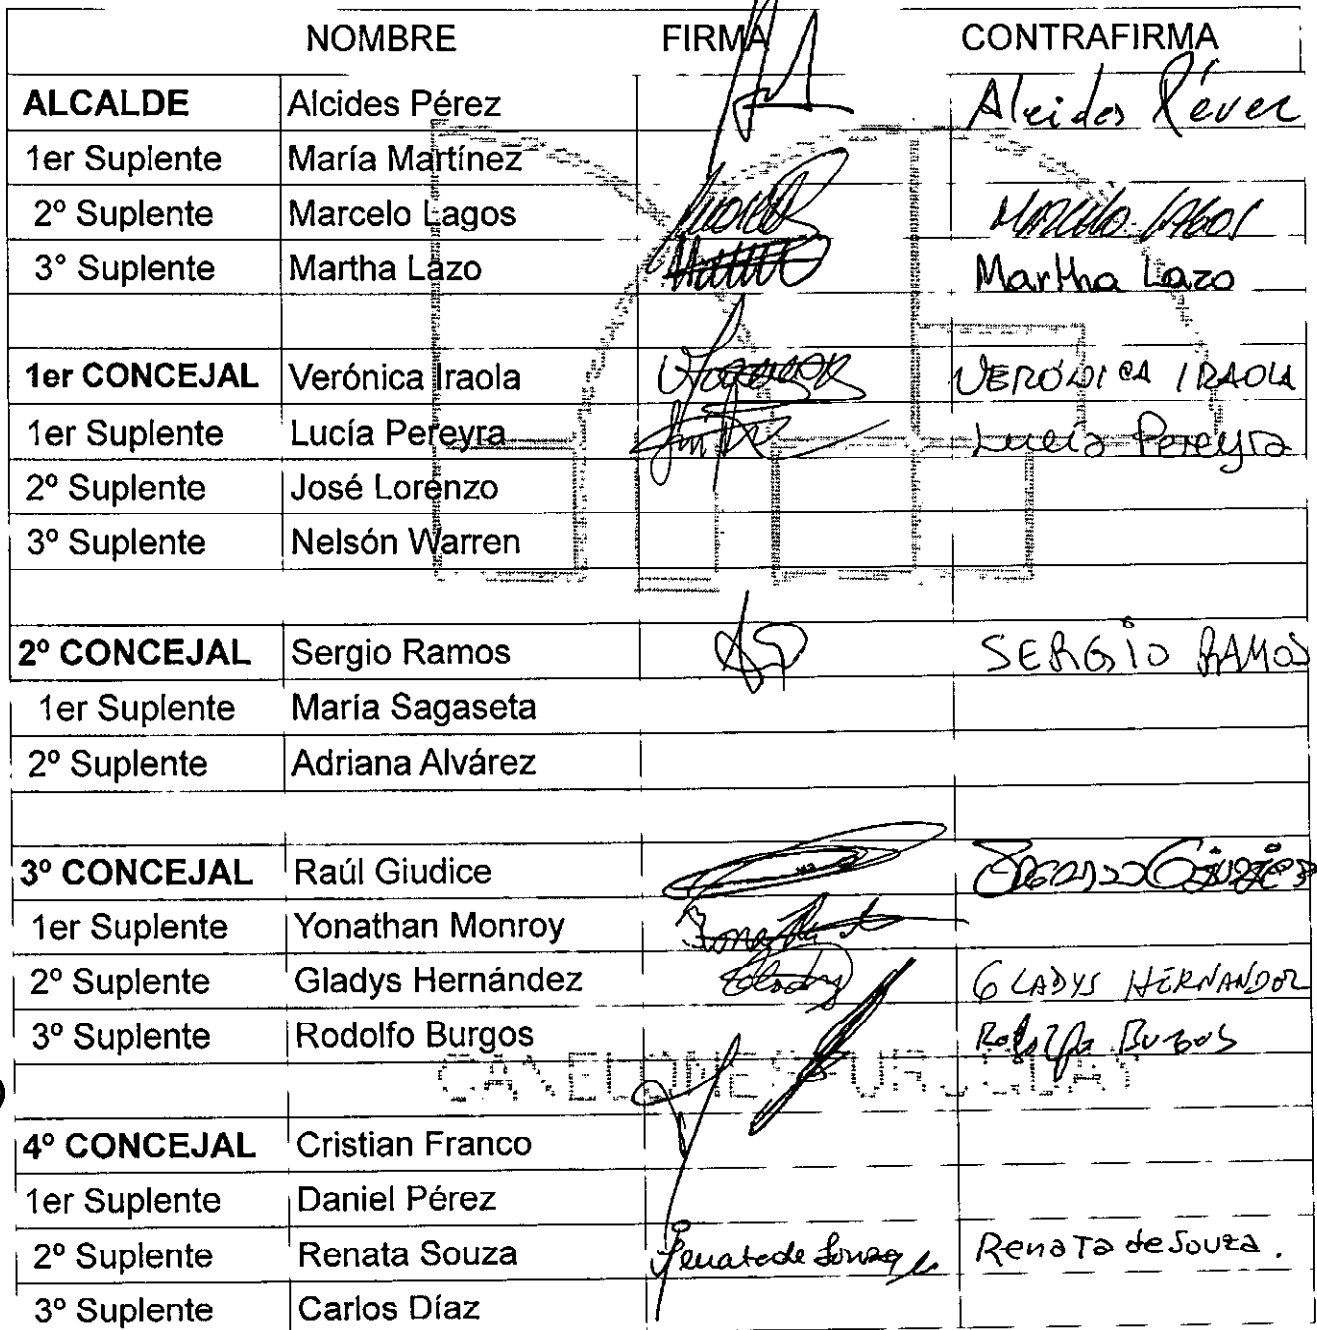 NOMBRE FIRMA CONTRAFIRMA
ALCALDE Alcides Pérez Alcides Pérez
1er Suplente María Martínez
2º Suplente Marcelo Lagos Marcelo Lagos
3° Suplente Martha Lazo Martha Lazo
1er CONCEJAL Verónica Iraola VERÓNICA IRAOLA
1er Suplente Lucía Pereyra Lucía Pereyra
2º Suplente José Lorenzo
3º Suplente Nelsón Warren
2º CONCEJAL Sergio Ramos SERGIO RAMOS
1er Suplente María Sagaseta
2º Suplente Adriana Alvárez
3º CONCEJAL Raúl Giudice
1er Suplente Yonathan Monroy
2º Suplente Gladys Hernández Gladys GLADYS HERNANDEZ
3º Suplente Rodolfo Burgos Rodolfo Burgos
CANELONES URUGUAY
4º CONCEJAL Cristian Franco
1er Suplente Daniel Pérez
2º Suplente Renata Souza Renata de Souza Renata de Souza.
3º Suplente Carlos Díaz